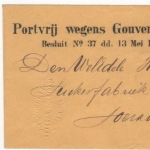 Portvrij wegens Gouver
Besluit Nº 37 dd. 13 Mei 1
Den WelEdle H
Suikerfabriek